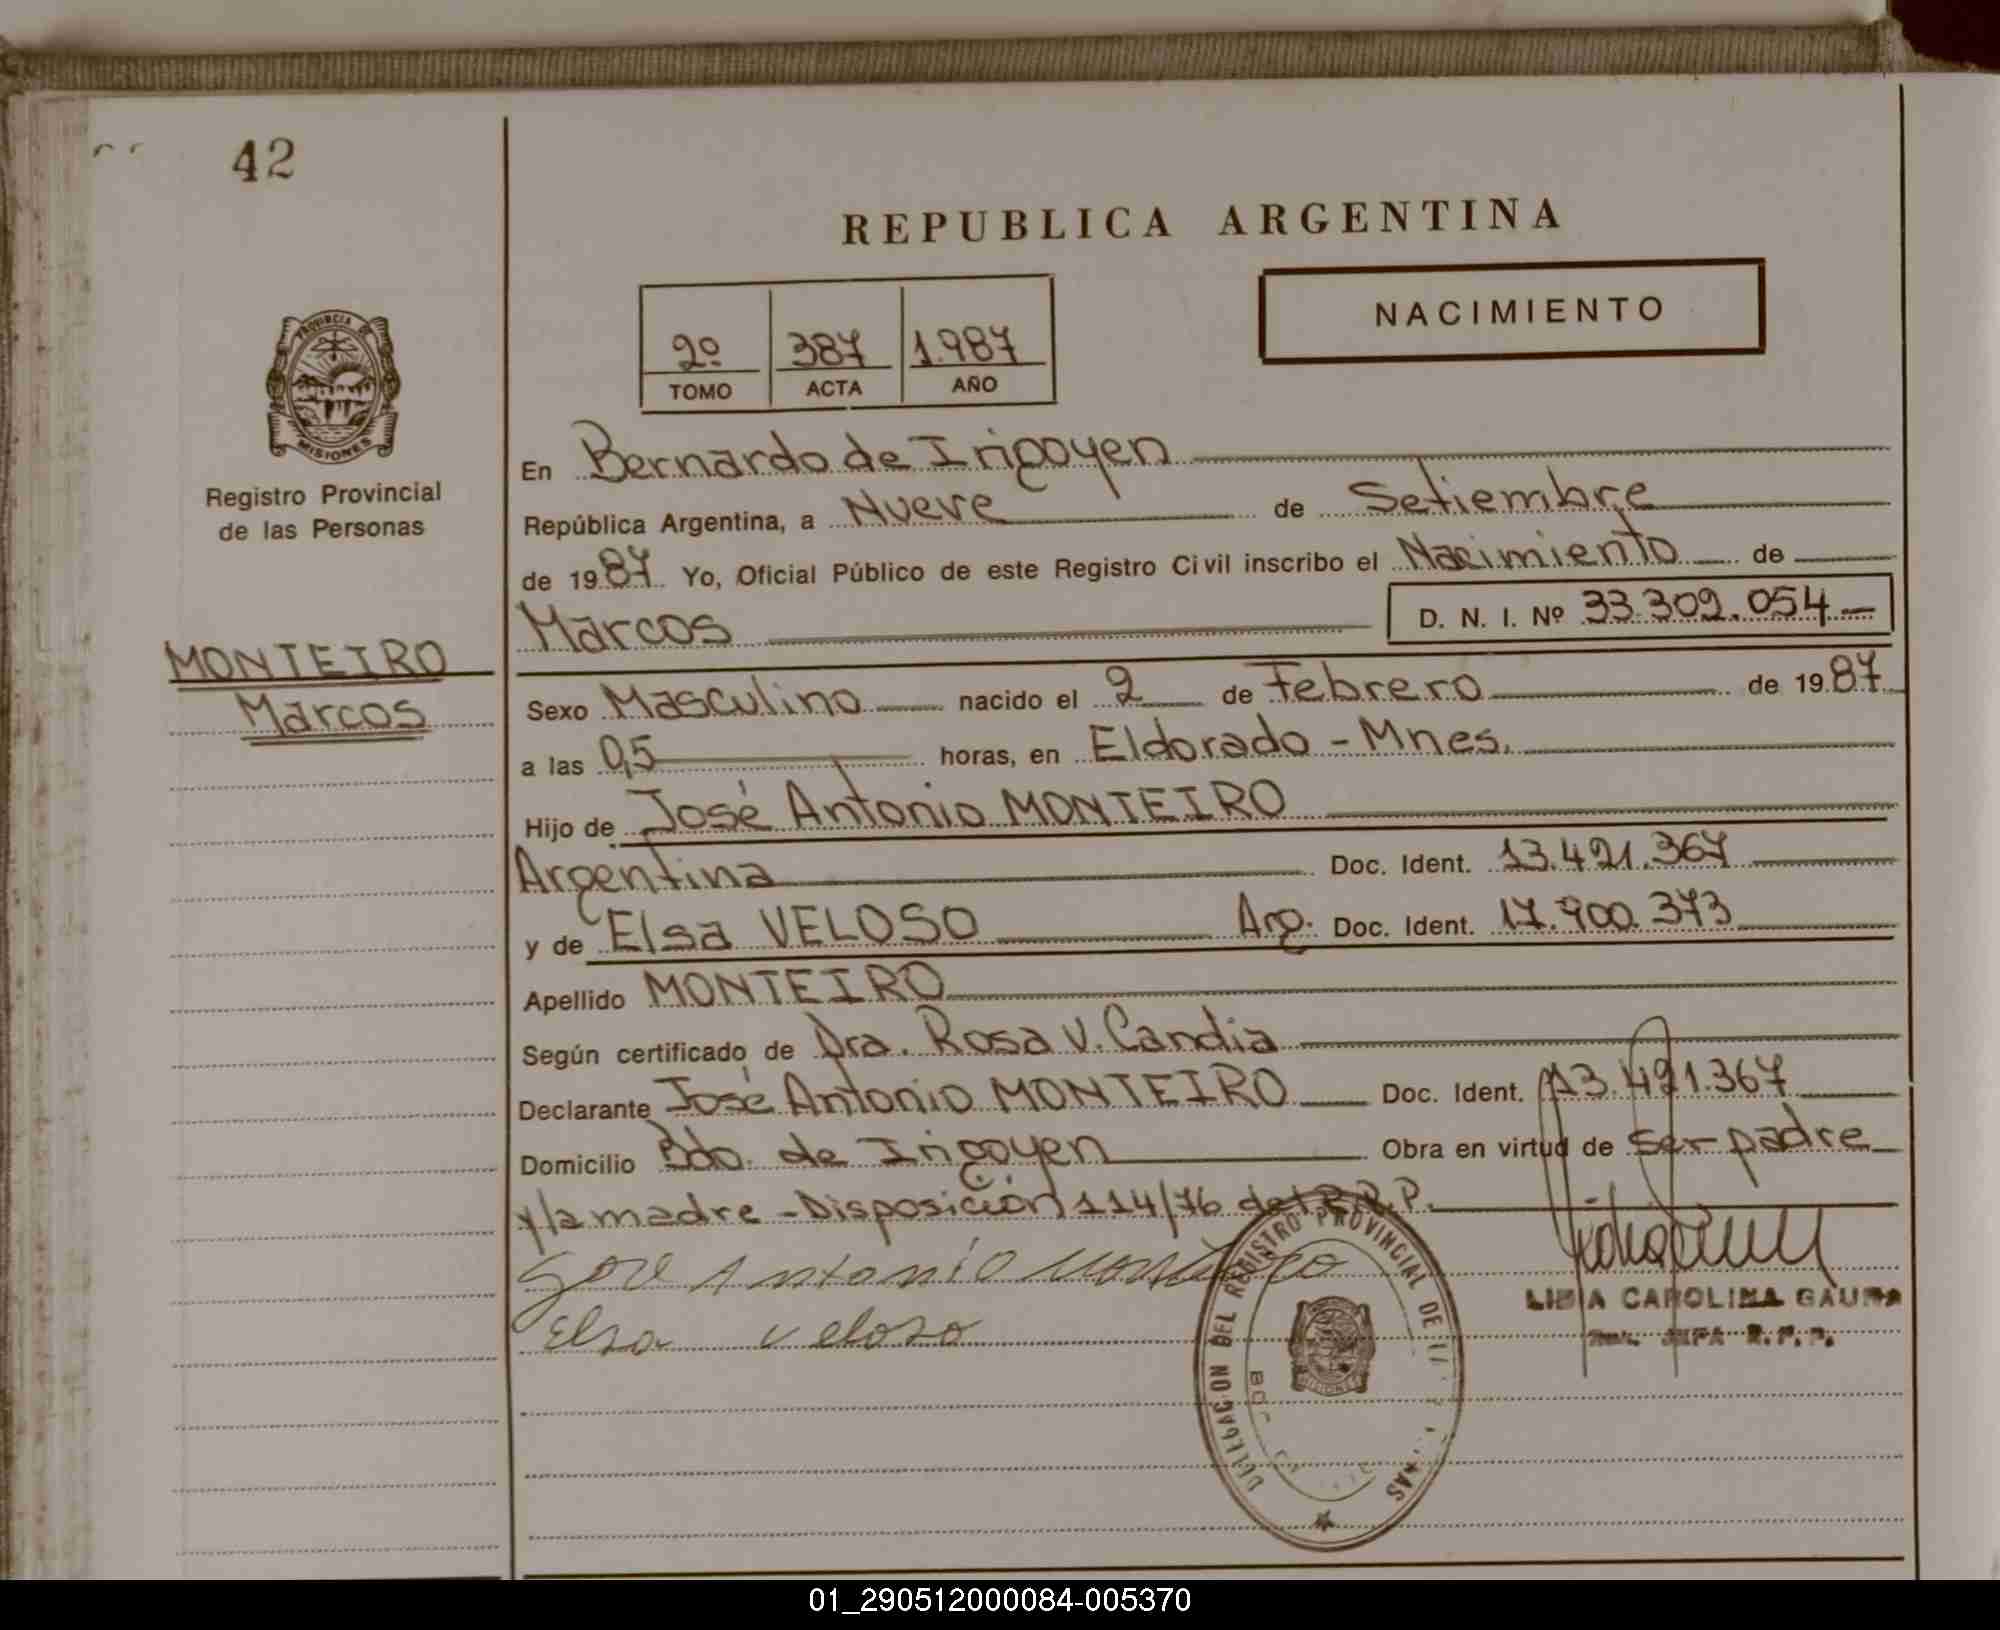 42
REPUBLICA ARGENTINA
NACIMIENTO
2º 387 1.987
TOMO ACTA AÑO
PROVINCIA DE
MISIONES
Registro Provincial
de las Personas
En Bernardo de Irigoyen
República Argentina, a Nueve de Setiembre
de 1987 Yo, Oficial Público de este Registro Civil inscribo el Nacimiento de
Marcos D. N. I. Nº 33.302.054
MONTEIRO
Marcos
Sexo Masculino nacido el 2 de Febrero de 1987
a las 0,5 horas, en Eldorado - Mnes.
Hijo de José Antonio MONTEIRO
Argentina Doc. Ident. 13.421.367
y de Elsa VELOSO Arg. Doc. Ident. 17.900.373
Apellido MONTEIRO
Según certificado de Dra. Rosa V. Candia
Declarante José Antonio MONTEIRO Doc. Ident. 13.421.367
Domicilio Bdo. de Irigoyen Obra en virtud de ser padre
y/a madre - Disposición 114/76 del R.P.P.
José Antonio Monteiro
Elsa Veloso
CAROLINA
JEFA R.P.P.
DELEGACION DEL REGISTRO PROVINCIAL DE
MISIONES
01_290512000084-005370